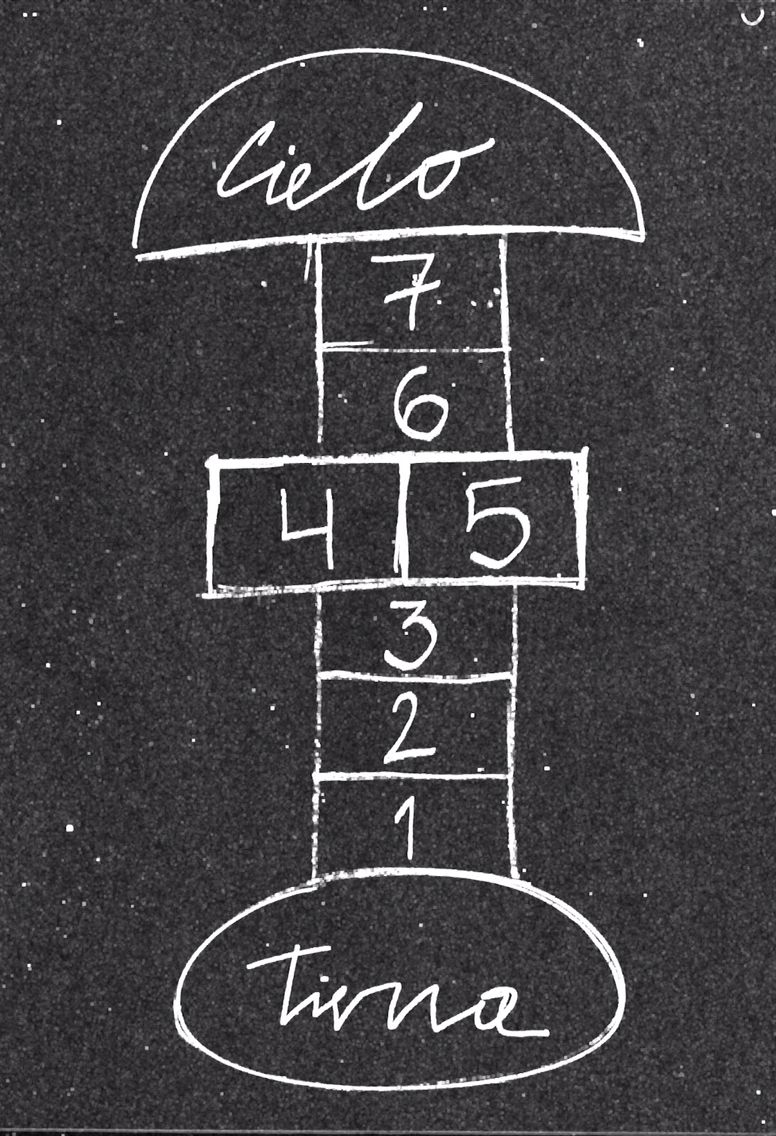 Cielo
7
6
4 5
3
2
1
Tierra